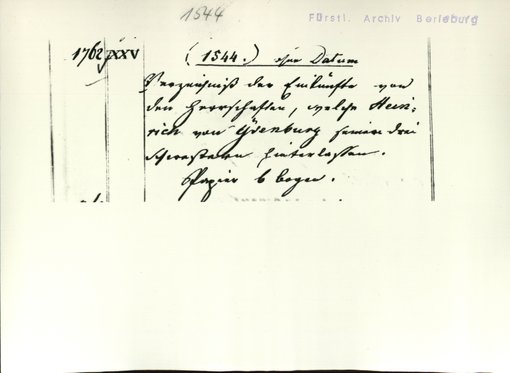 1544
Fürstl. Archiv Berleburg
1762 XXV
(1544.) ohne Datum
Verzeichniß der Einkünfte von
den Herrschaften, welche Hein-
rich von Isenburg seinen drei
Schwestern hinterlassen.
Papier 6 bogen.